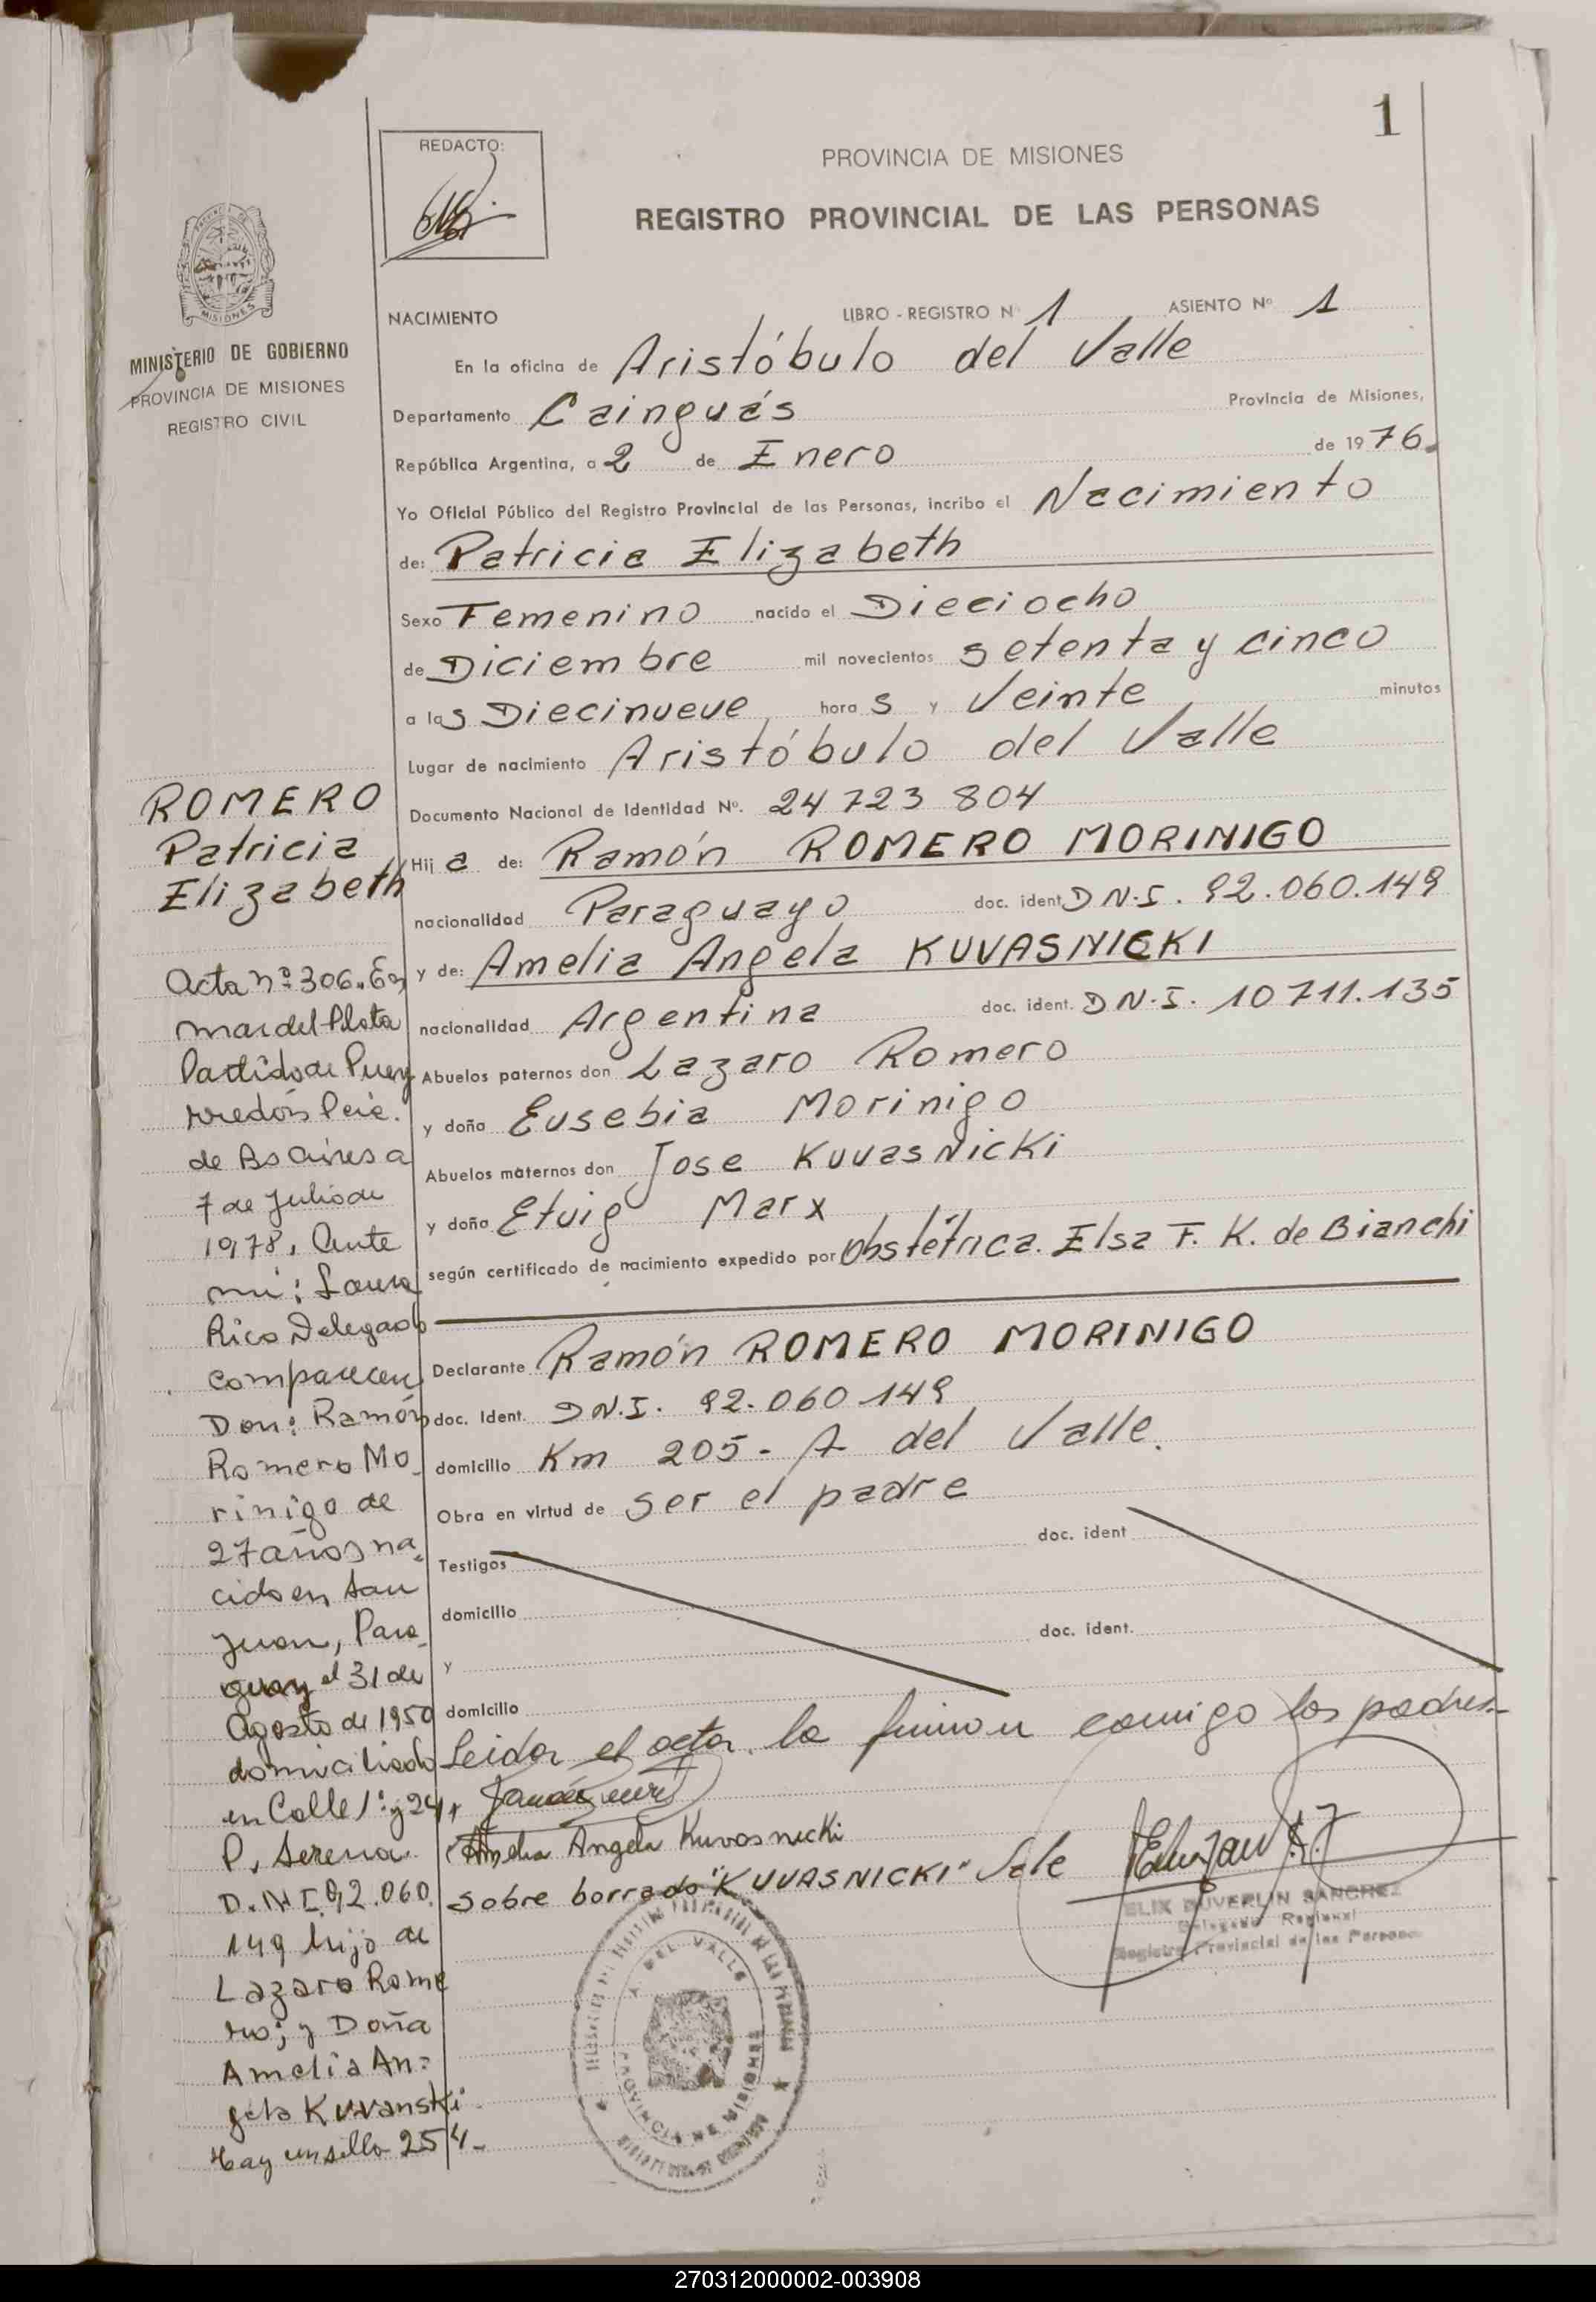 1
REDACTO:
PROVINCIA DE MISIONES
REGISTRO PROVINCIAL DE LAS PERSONAS
MISIONES
MINISTERIO DE GOBIERNO
PROVINCIA DE MISIONES
REGISTRO CIVIL
NACIMIENTO LIBRO - REGISTRO Nº 1 ASIENTO Nº 1
En la oficina de Aristóbulo del Valle
Departamento Cainguás Provincia de Misiones,
República Argentina, a 2 de Enero de 1976.
Yo Oficial Público del Registro Provincial de las Personas, incribo el Nacimiento
de: Patricia Elizabeth
Sexo Femenino nacido el Dieciocho
de Diciembre mil novecientos setenta y cinco
a las Diecinueve horas y Veinte minutos
Lugar de nacimiento Aristóbulo del Valle
Documento Nacional de Identidad Nº. 24 723 804
Hija de: Ramón ROMERO MORINIGO
nacionalidad Paraguayo doc. ident D N.I. 92.060.149
y de: Amelia Angela KUVASNICKI
nacionalidad Argentina doc. ident. D N.I. 10711.135
Abuelos paternos don Lazaro Romero
y doña Eusebia Morinigo
Abuelos maternos don Jose Kuvasnicki
y doña Etvig Marx
según certificado de nacimiento expedido por Obstétrica. Elsa F. K. de Bianchi
Declarante Ramón ROMERO MORINIGO
doc. Ident. D N.I. 92.060 149
domicilio Km 205- A del Valle.
Obra en virtud de ser el padre
doc. ident
Testigos
domicilio
doc. ident.
y
domicilio
Leida el acta, la firman conmigo los padres.-
Amelia Angela Kuvasnicki
Sobre borrado "KUVASNICKI" Vale
ELIX DUVERLIN SANCHEZ
Delegado Regional
Registro Provincial de las Personas
A. DEL VALLE
PROVINCIA DE MISIONES
ROMERO
Patricia
Elizabeth
Acta nº 306. En
mar del Plata
Partido de Puey
rredón Pcia.
de Bs Aires a
7 de Julio de
1978, Ante
mi: Laura
Rico Delegado
comparecen
Don: Ramón
Romero Mo
rinigo de
27 años na-
cido en San
Juan, Para-
guay el 31 de
Agosto de 1950
domiciliado
en Calle 1ª y 24
P. Serena
D.N.I. 92.060.
149 hijo de
Lazaro Rome
ro; y Doña
Amelia An=
gela Kuvanski
Hay un sello 254-
270312000002-003908